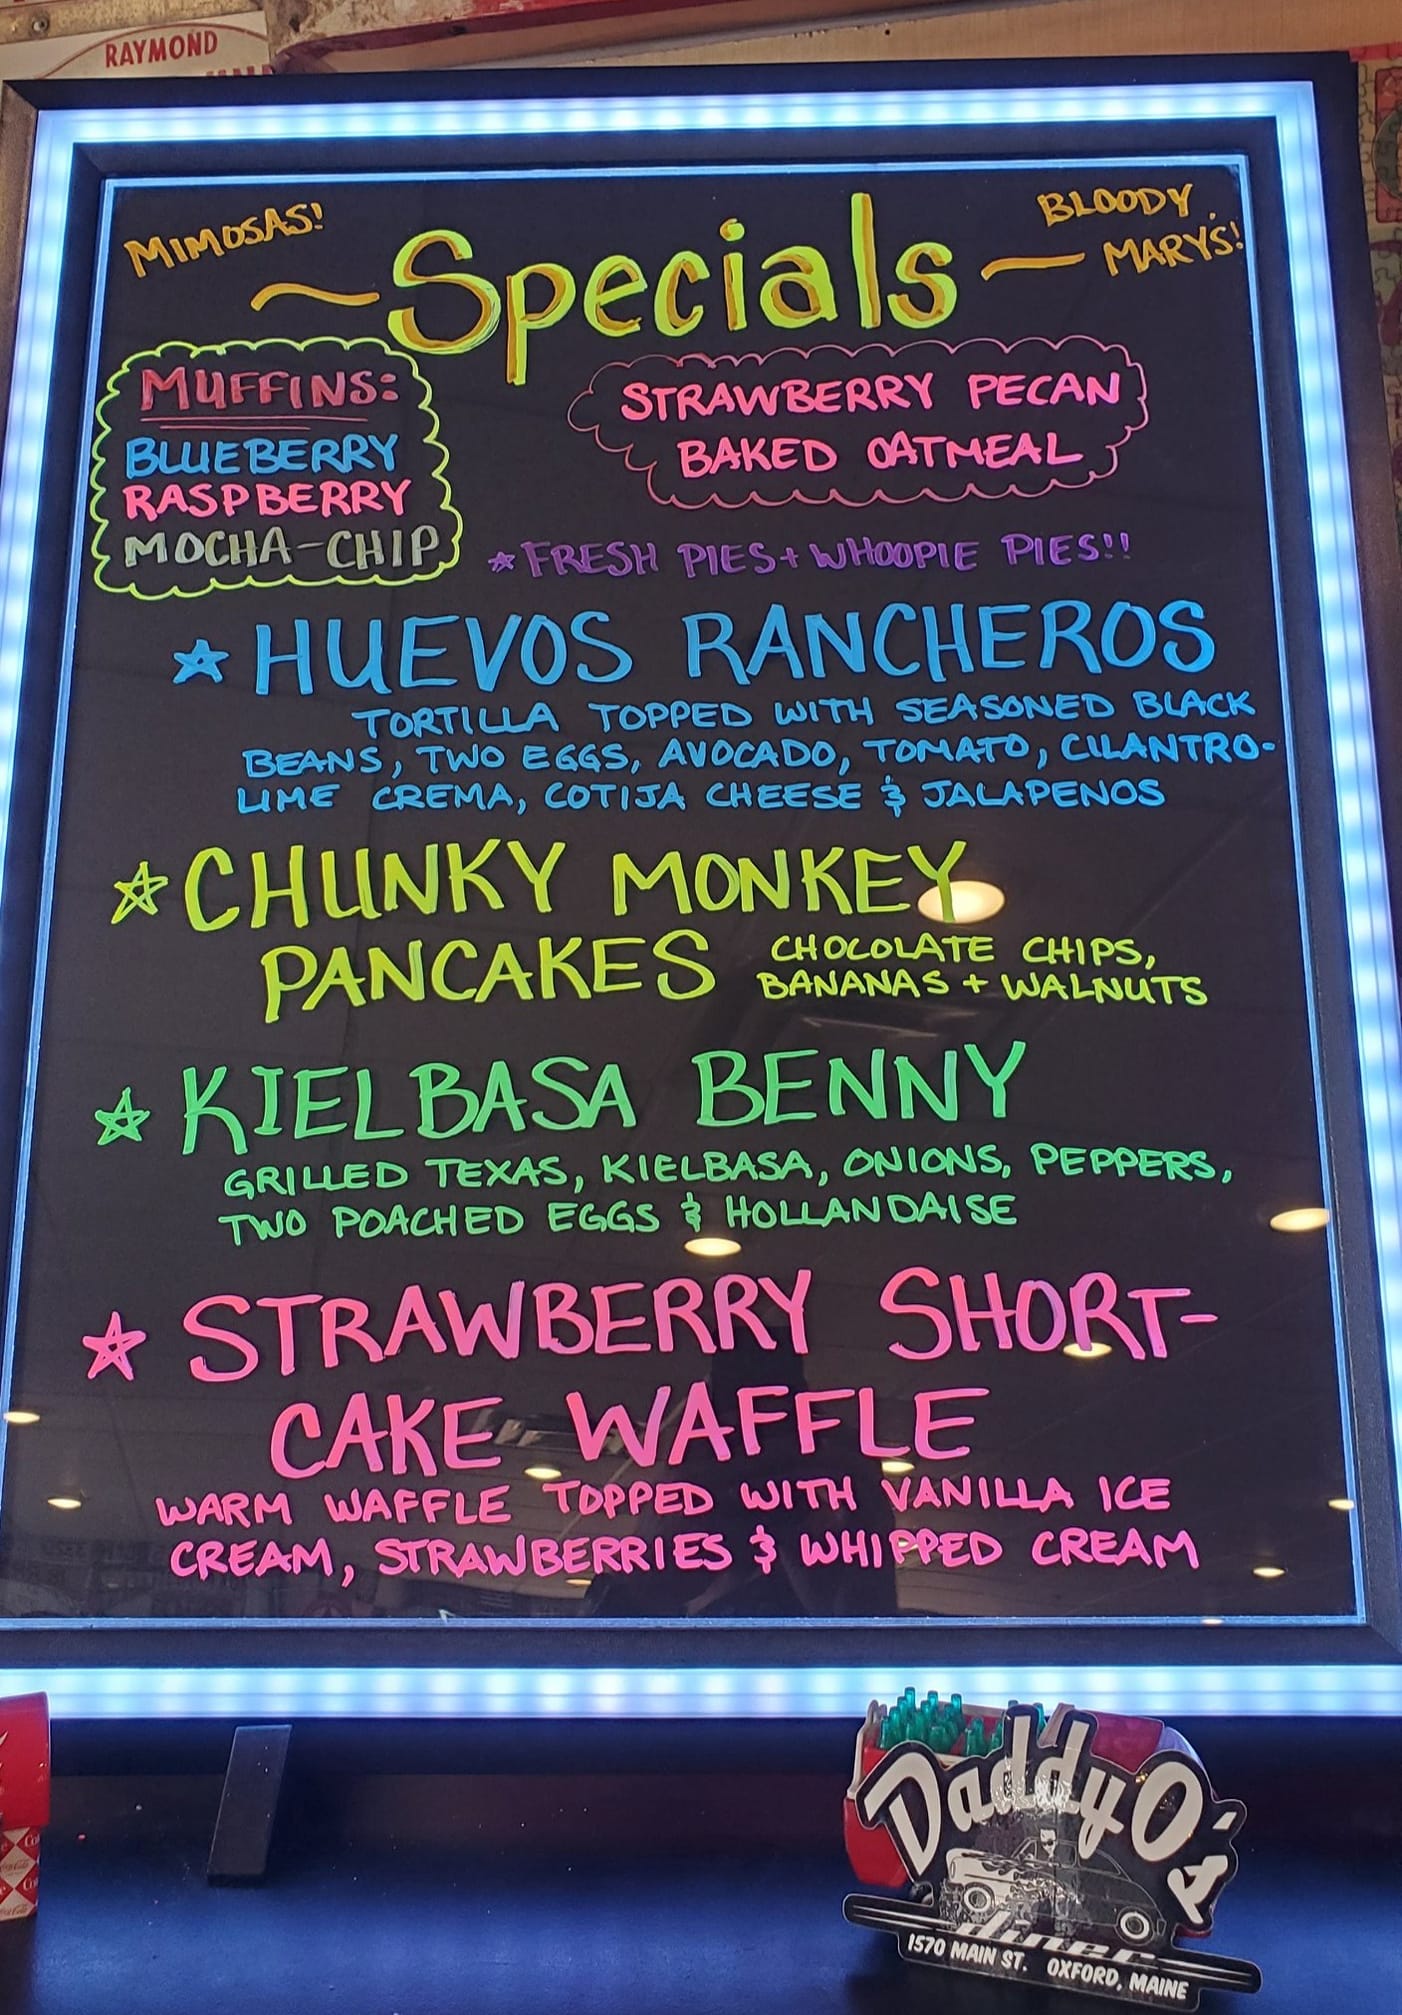 RAYMOND
MIMOSAS!
BLOODY
MARY'S!
~Specials~
MUFFINS:
BLUEBERRY
RASPBERRY
MOCHA-CHIP
STRAWBERRY PECAN
BAKED OATMEAL
*FRESH PIES + WHOOPIE PIES!!
☆ HUEVOS RANCHEROS
TORTILLA TOPPED WITH SEASONED BLACK
BEANS, TWO EGGS, AVOCADO, TOMATO, CILANTRO-
LIME CREMA, COTIJA CHEESE & JALAPENOS
☆ CHUNKY MONKEY
PANCAKES
CHOCOLATE CHIPS,
BANANAS + WALNUTS
☆ KIELBASA BENNY
GRILLED TEXAS, KIELBASA, ONIONS, PEPPERS,
TWO POACHED EGGS & HOLLANDAISE
☆ STRAWBERRY SHORT-
CAKE WAFFLE
WARM WAFFLE TOPPED WITH VANILLA ICE
CREAM, STRAWBERRIES & WHIPPED CREAM
Daddy O's
diner
1570 MAIN ST. OXFORD, MAINE